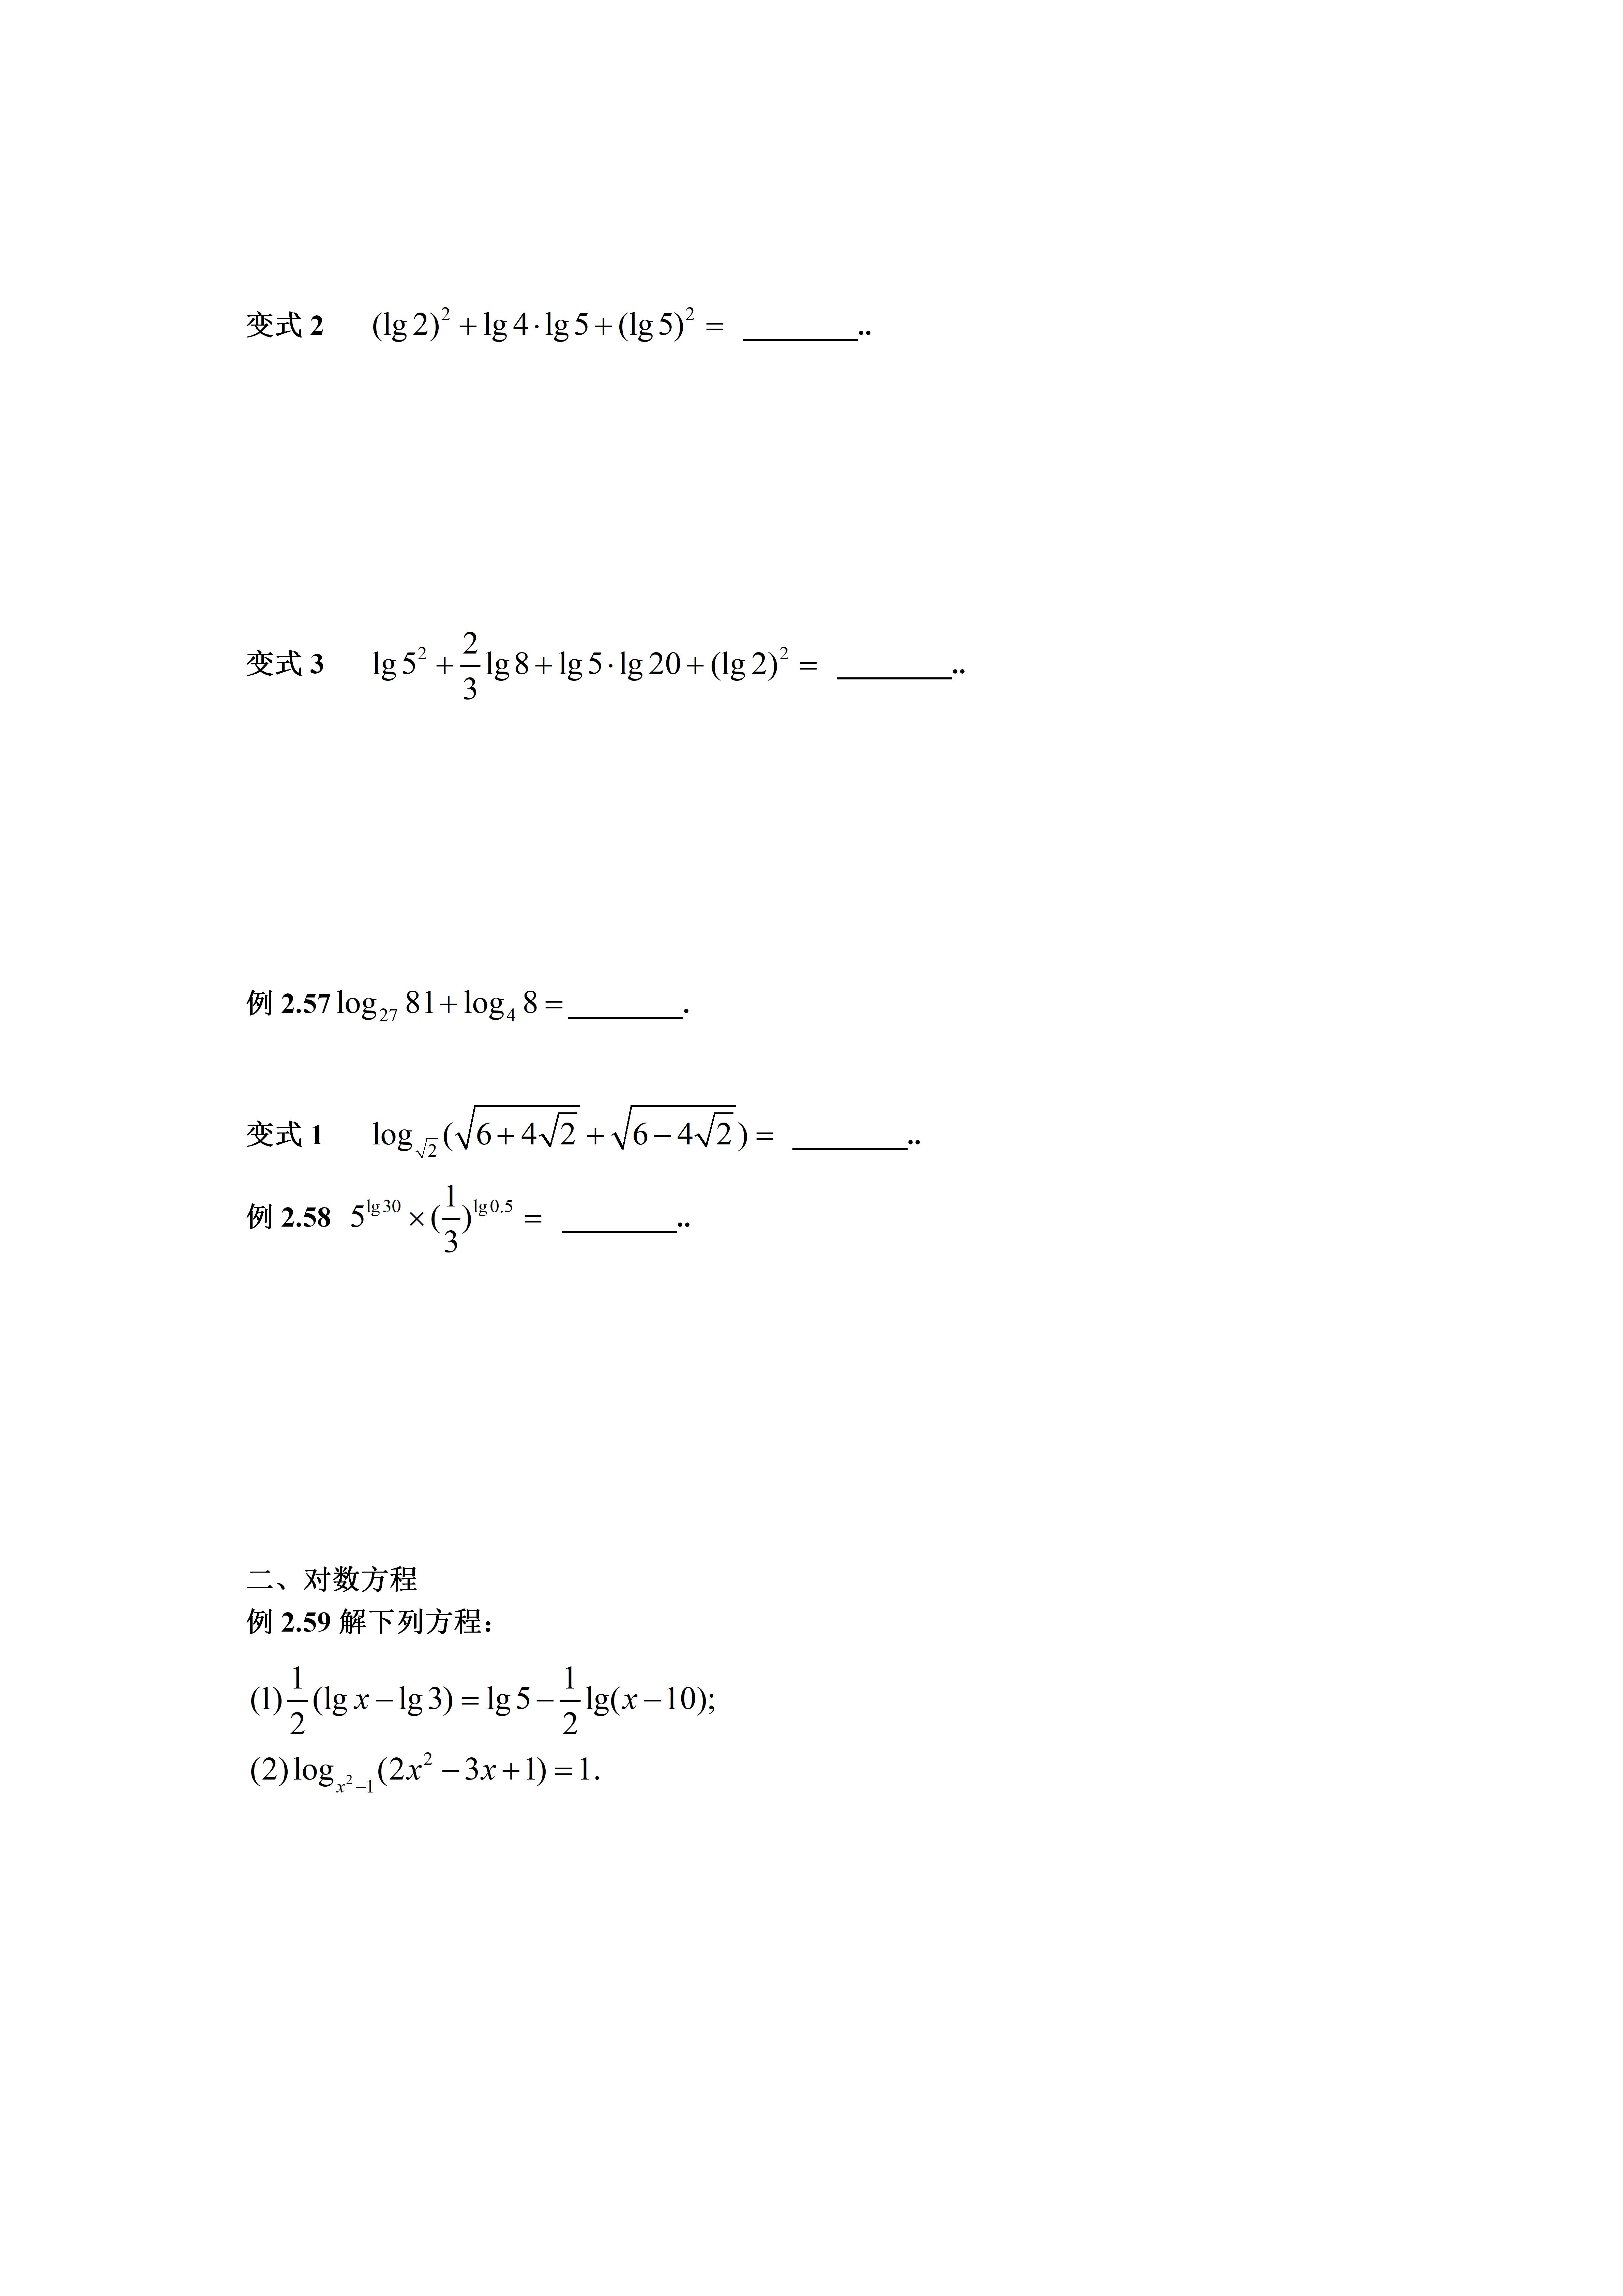 变式 2 $(\lg 2)^2 + \lg 4 \cdot \lg 5 + (\lg 5)^2 =$ ________..
变式 3 $\lg 5^2 + \frac{2}{3}\lg 8 + \lg 5 \cdot \lg 20 + (\lg 2)^2 =$ ________..
例 2.57 $\log_{27} 81 + \log_4 8 =$ ________.
变式 1 $\log_{\sqrt{2}} (\sqrt{6+4\sqrt{2}} + \sqrt{6-4\sqrt{2}}) =$ ________..
例 2.58 $5^{\lg 30} \times (\frac{1}{3})^{\lg 0.5} =$ ________..
二、对数方程
例 2.59 解下列方程：
$(1) \frac{1}{2}(\lg x - \lg 3) = \lg 5 - \frac{1}{2}\lg(x-10);$
$(2) \log_{x^2-1}(2x^2 - 3x + 1) = 1.$